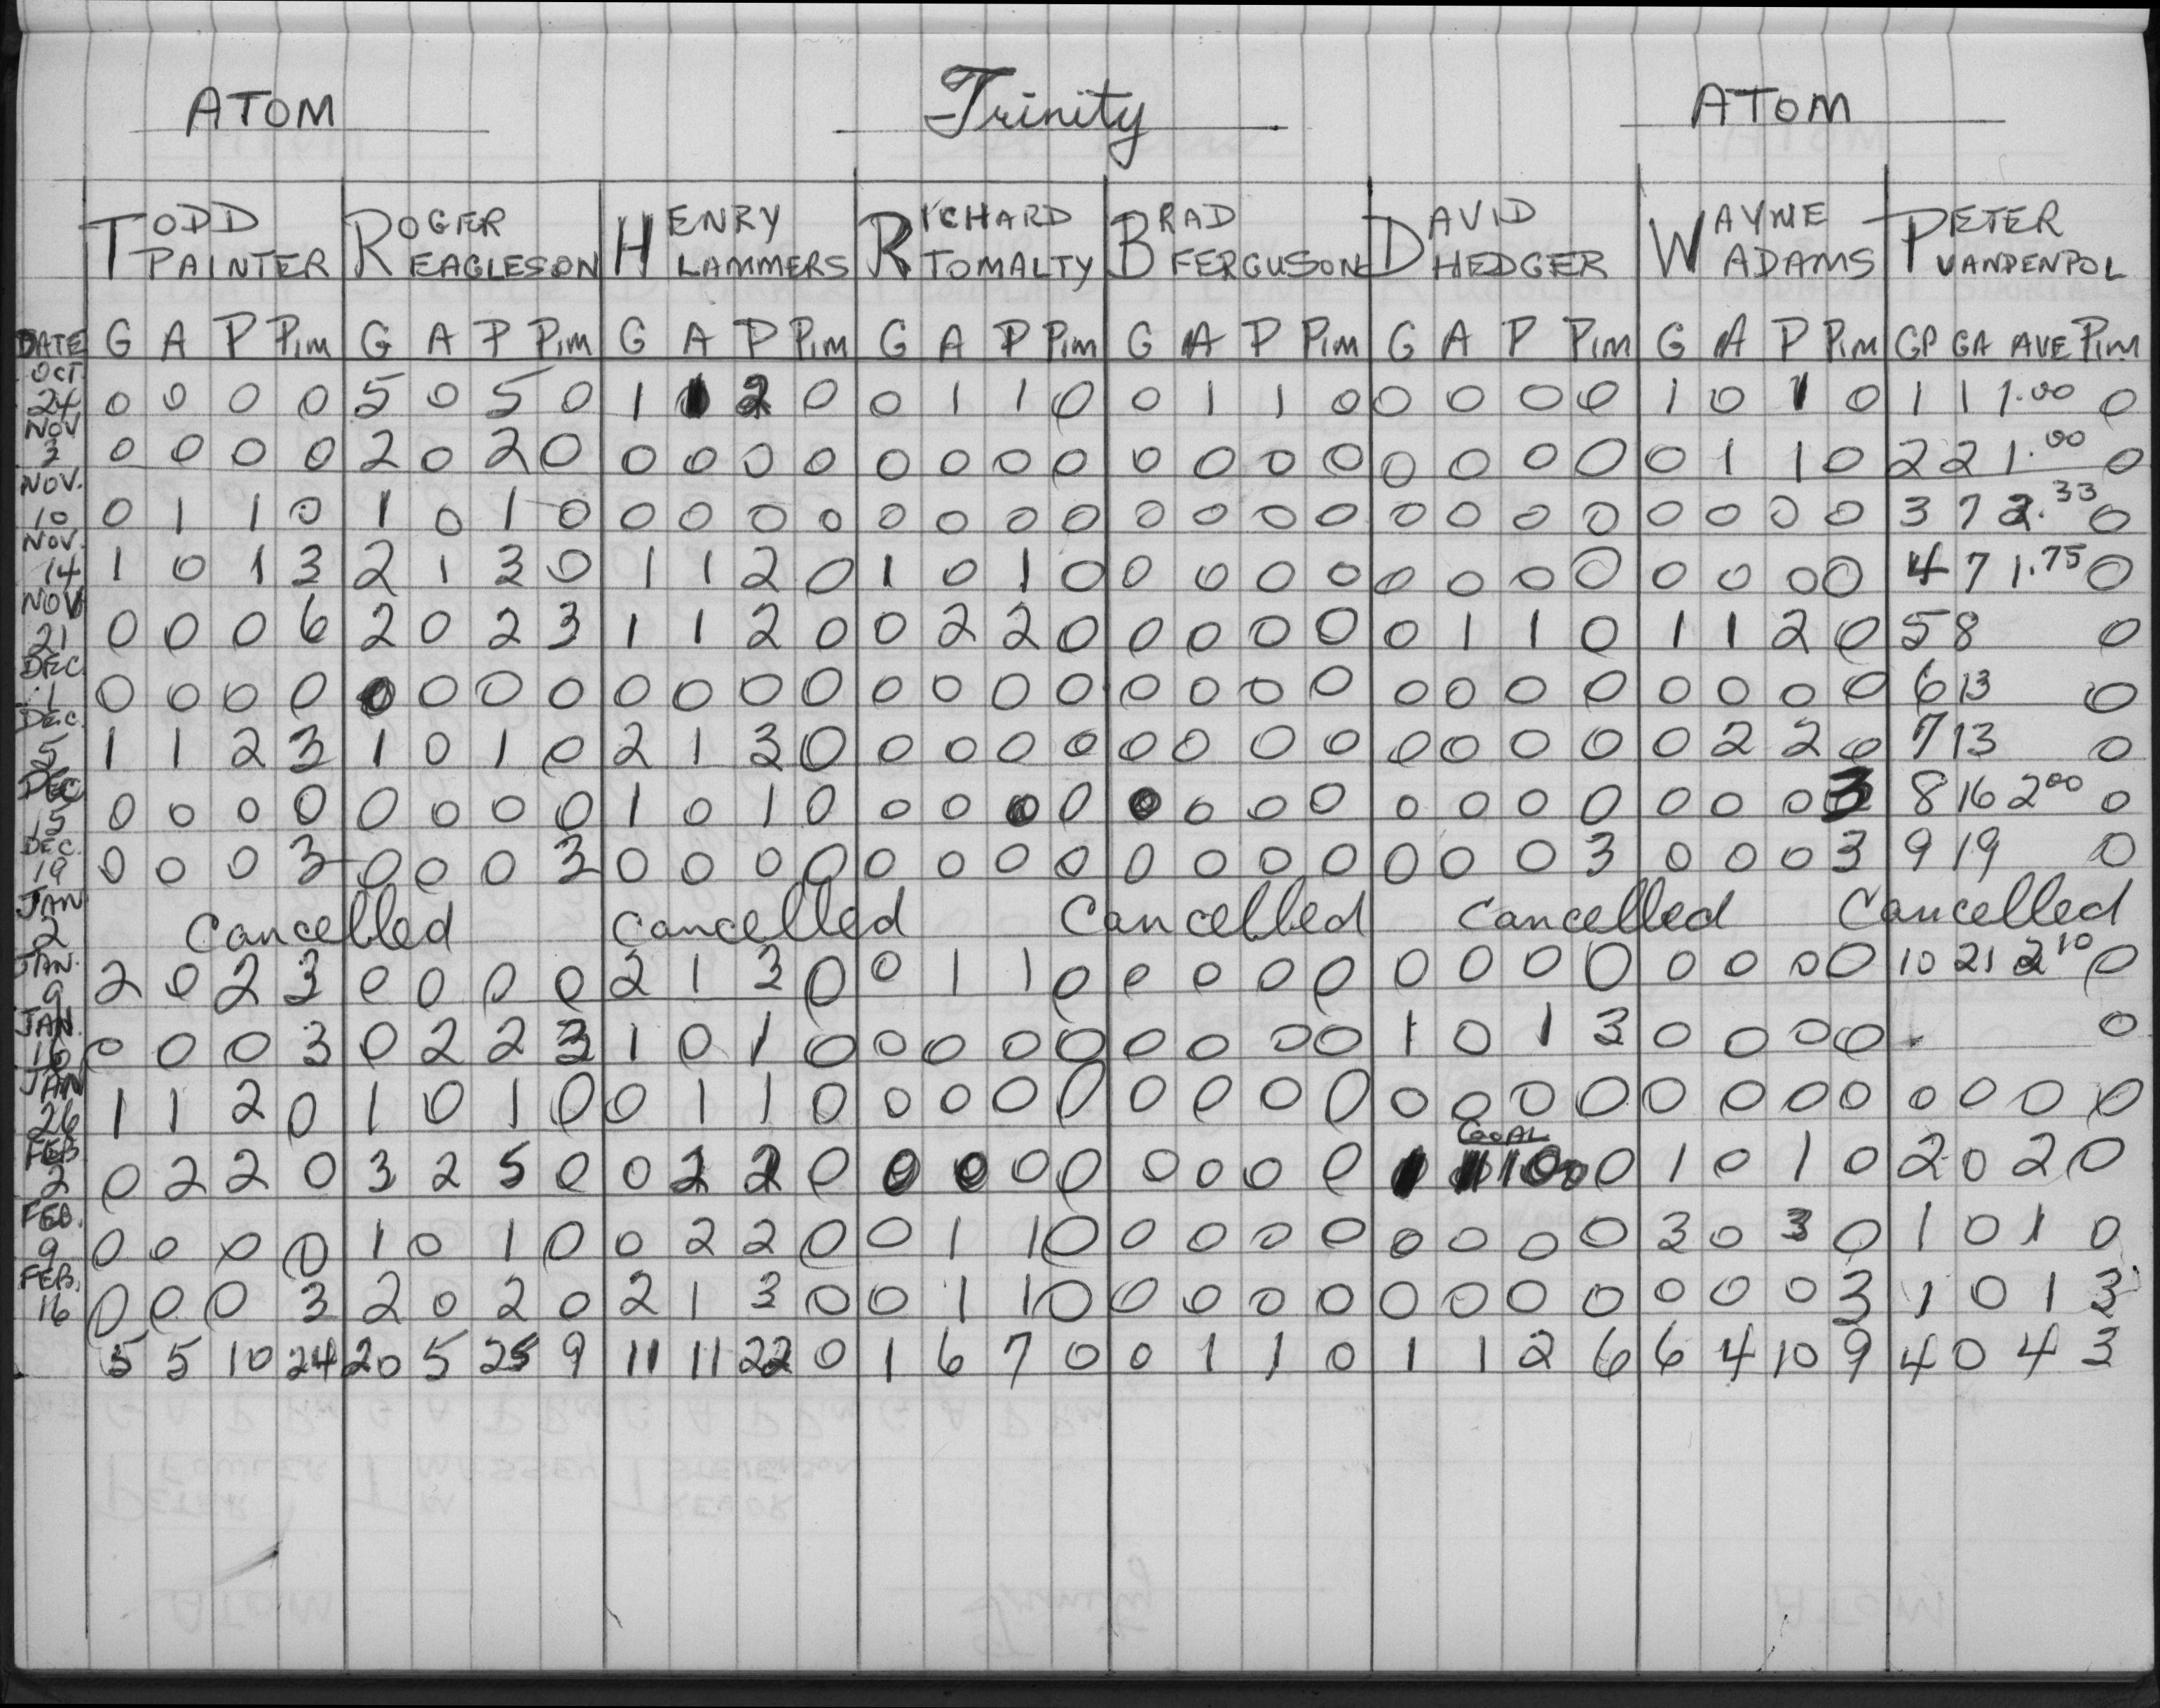 ATOM Trinity ATOM
TODD PAINTER ROGER EAGLESON HENRY LAMMERS RICHARD TOMALTY BRAD FERGUSON DAVID HEDGER WAYNE ADAMS PETER VANDENPOL
DATE G A P PIM G A P PIM G A P PIM G A P PIM G A P PIM G A P PIM G A P PIM GP GA AVE PIM
OCT. 24 0 0 0 0 5 0 5 0 1 1 2 0 0 1 1 0 0 1 1 0 0 0 0 0 1 0 1 0 1 1 1.00 0
NOV 3 0 0 0 0 2 0 2 0 0 0 0 0 0 0 0 0 0 0 0 0 0 0 0 0 0 1 1 0 2 2 1.00 0
NOV. 10 0 1 1 0 1 0 1 0 0 0 0 0 0 0 0 0 0 0 0 0 0 0 0 0 0 0 0 0 3 7 2.33 0
NOV. 14 1 0 1 3 2 1 3 0 1 1 2 0 1 0 1 0 0 0 0 0 0 0 0 0 0 0 0 0 4 7 1.75 0
NOV 21 0 0 0 6 2 0 2 3 1 1 2 0 0 2 2 0 0 0 0 0 0 1 1 0 1 1 2 0 5 8 0
DEC. 1 0 0 0 0 0 0 0 0 0 0 0 0 0 0 0 0 0 0 0 0 0 0 0 0 0 0 0 0 6 13 0
DEC. 5 1 1 2 3 1 0 1 0 2 1 3 0 0 0 0 0 0 0 0 0 0 0 0 0 0 2 2 0 7 13 0
DEC 15 0 0 0 0 0 0 0 0 1 0 1 0 0 0 0 0 0 0 0 0 0 0 0 0 0 0 0 3 8 16 2 00 0
DEC. 19 0 0 0 3 0 0 0 3 0 0 0 0 0 0 0 0 0 0 0 0 0 0 0 3 0 0 0 3 9 19 0
JAN 2 Cancelled Cancelled Cancelled Cancelled Cancelled
JAN. 9 2 0 2 3 0 0 0 0 2 1 3 0 0 1 1 0 0 0 0 0 0 0 0 0 0 0 0 0 10 21 2 10 0
JAN. 16 0 0 0 3 0 2 2 3 1 0 1 0 0 0 0 0 0 0 0 0 1 0 1 3 0 0 0 0 0
JAN 26 1 1 2 0 1 0 1 0 0 1 1 0 0 0 0 0 0 0 0 0 0 0 0 0 0 0 0 0 0 0 0 0
GOAL
FEB 2 0 2 2 0 3 2 5 0 0 2 2 0 0 0 0 0 0 0 0 0 0 1 0 1 0 2 0 2 0
FEB. 9 0 0 0 0 1 0 1 0 0 2 2 0 0 1 1 0 0 0 0 0 0 0 0 0 3 0 3 0 1 0 1 0
FEB. 16 0 0 0 3 2 0 2 0 2 1 3 0 0 1 1 0 0 0 0 0 0 0 0 0 0 0 0 3 1 0 1 3
5 5 10 24 20 5 25 9 11 11 22 0 1 6 7 0 0 1 1 0 1 1 2 6 6 4 10 9 4 0 4 3